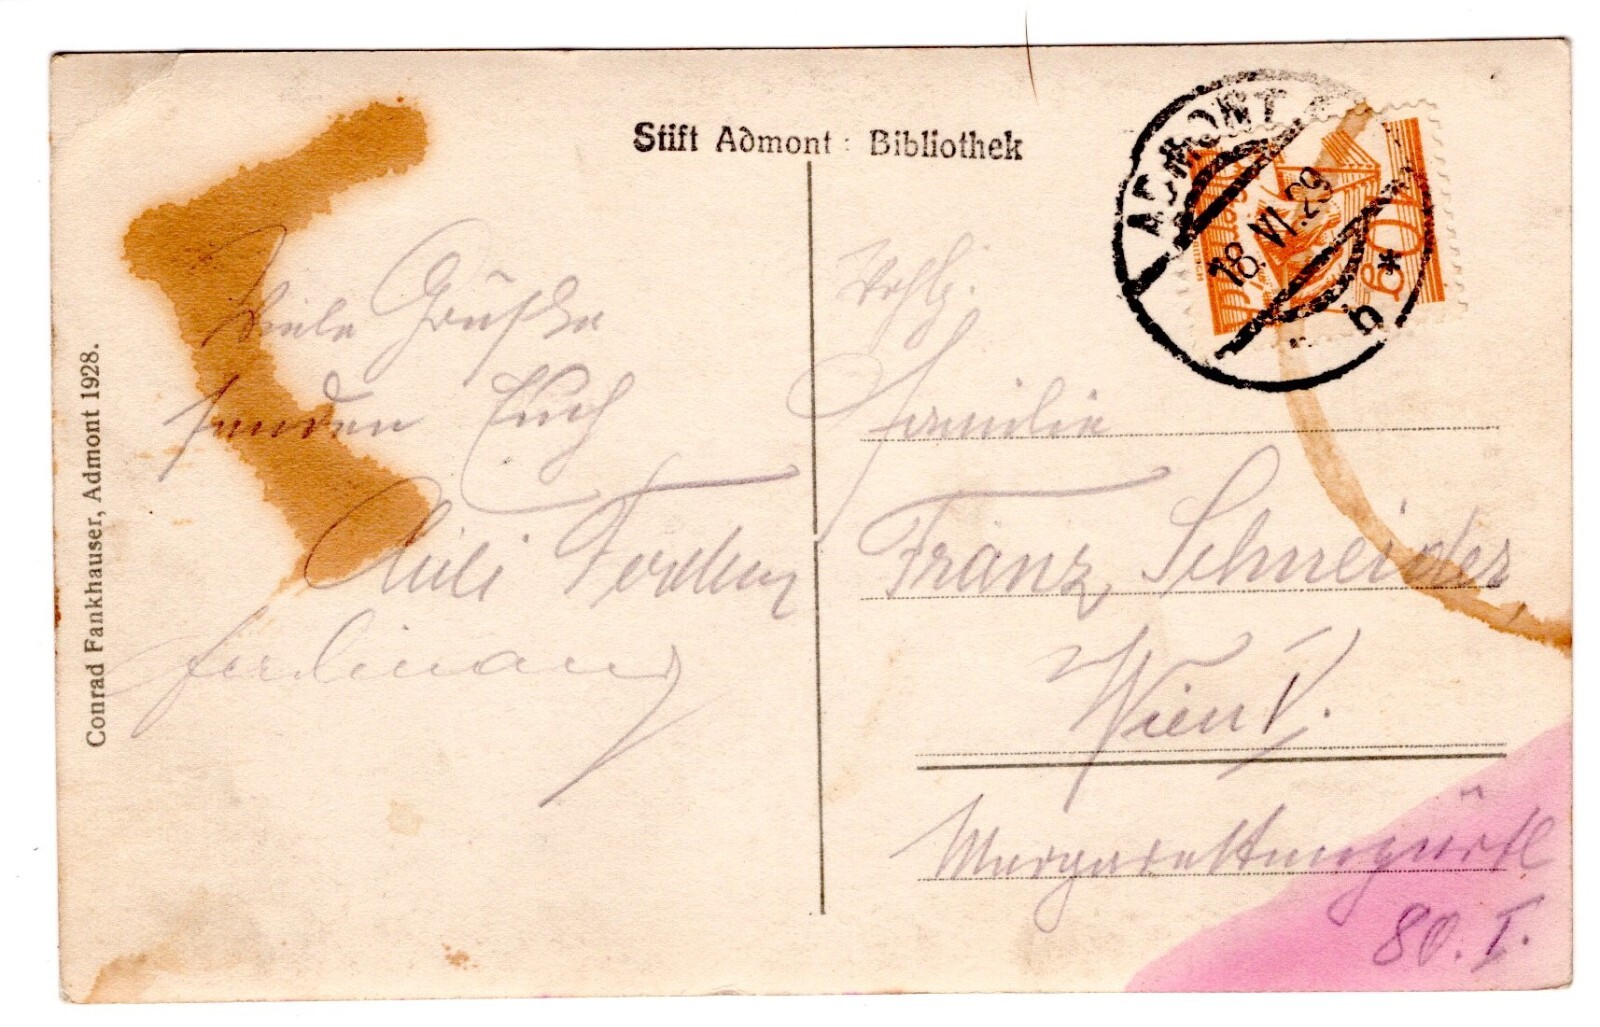 Stift Admont : Bibliothek
ADMONT
18. VI. 29
b
10g
Conrad Fankhauser, Admont 1928.
Viele Grüße
senden Euch
Ferdinand
Familie
Franz Schneider
Wien V.
Margaretengürtl
80. I.